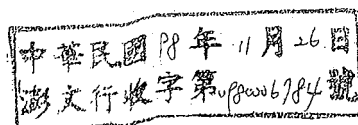 中華民國98年11月26日
澎文行收字第0980006784號